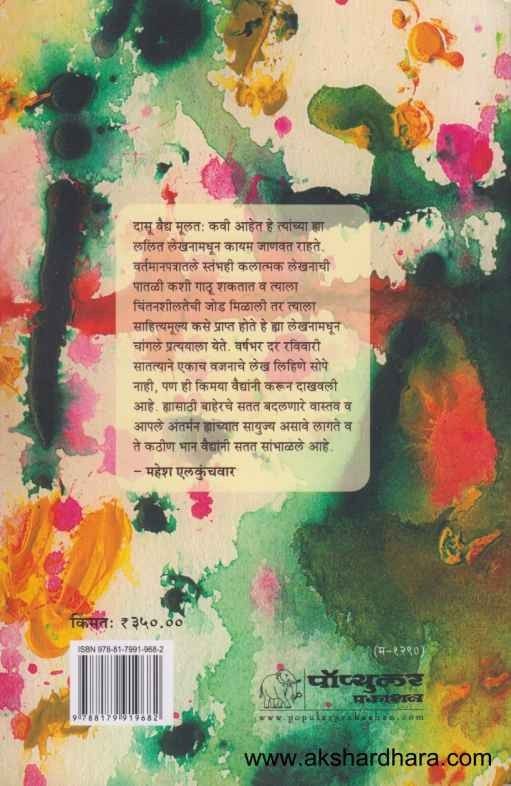 दासू वैद्य मूलतः कवी आहेत हे त्यांच्या ह्या
ललित लेखनामधून कायम जाणवत राहते.
वर्तमानपत्रातले स्तंभही कलात्मक लेखनाची
पातळी कशी गाठू शकतात व त्याला
चिंतनशीलतेची जोड मिळाली तर त्याला
साहित्यमूल्य कसे प्राप्त होते हे ह्या लेखनामधून
चांगले प्रत्ययाला येते. वर्षभर दर रविवारी
सातत्याने एकाच वजनाचे लेख लिहिणे सोपे
नाही, पण ही किमया वैद्यांनी करून दाखवली
आहे. ह्यासाठी बाहेरचे सतत बदलणारे वास्तव व
आपले अंतर्मन ह्यांच्यात सायुज्य असावे लागते व
ते कठीण भान वैद्यांनी सतत सांभाळले आहे.
– महेश एलकुंचवार
किंमत: ₹३५०.००
ISBN 978-81-7991-968-2
9 788179 919682
(म-१२९०)
पॉप्युलर
प्रकाशन
www.popularprakashan.com
www.akshardhara.com